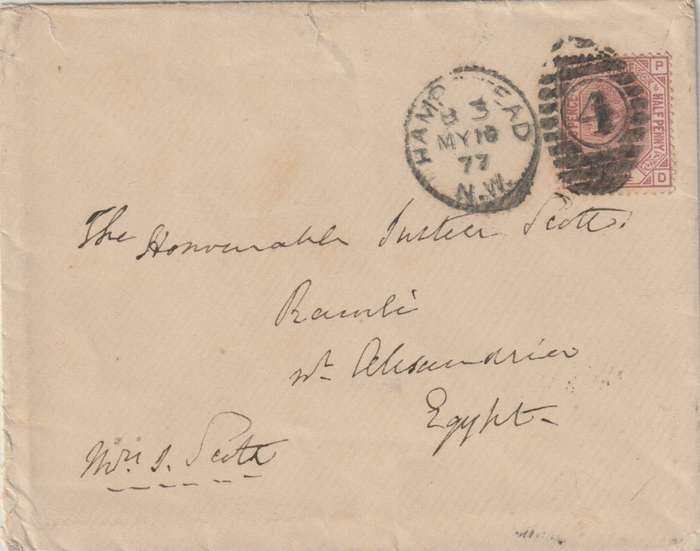 HAMPSTEAD
B 3
MY 18
77
N.W.
4
P
HALF PENNY
D
The Honourable Justice Scott
Ramli
nr Alexandria
Egypt
Mrs J. Scott